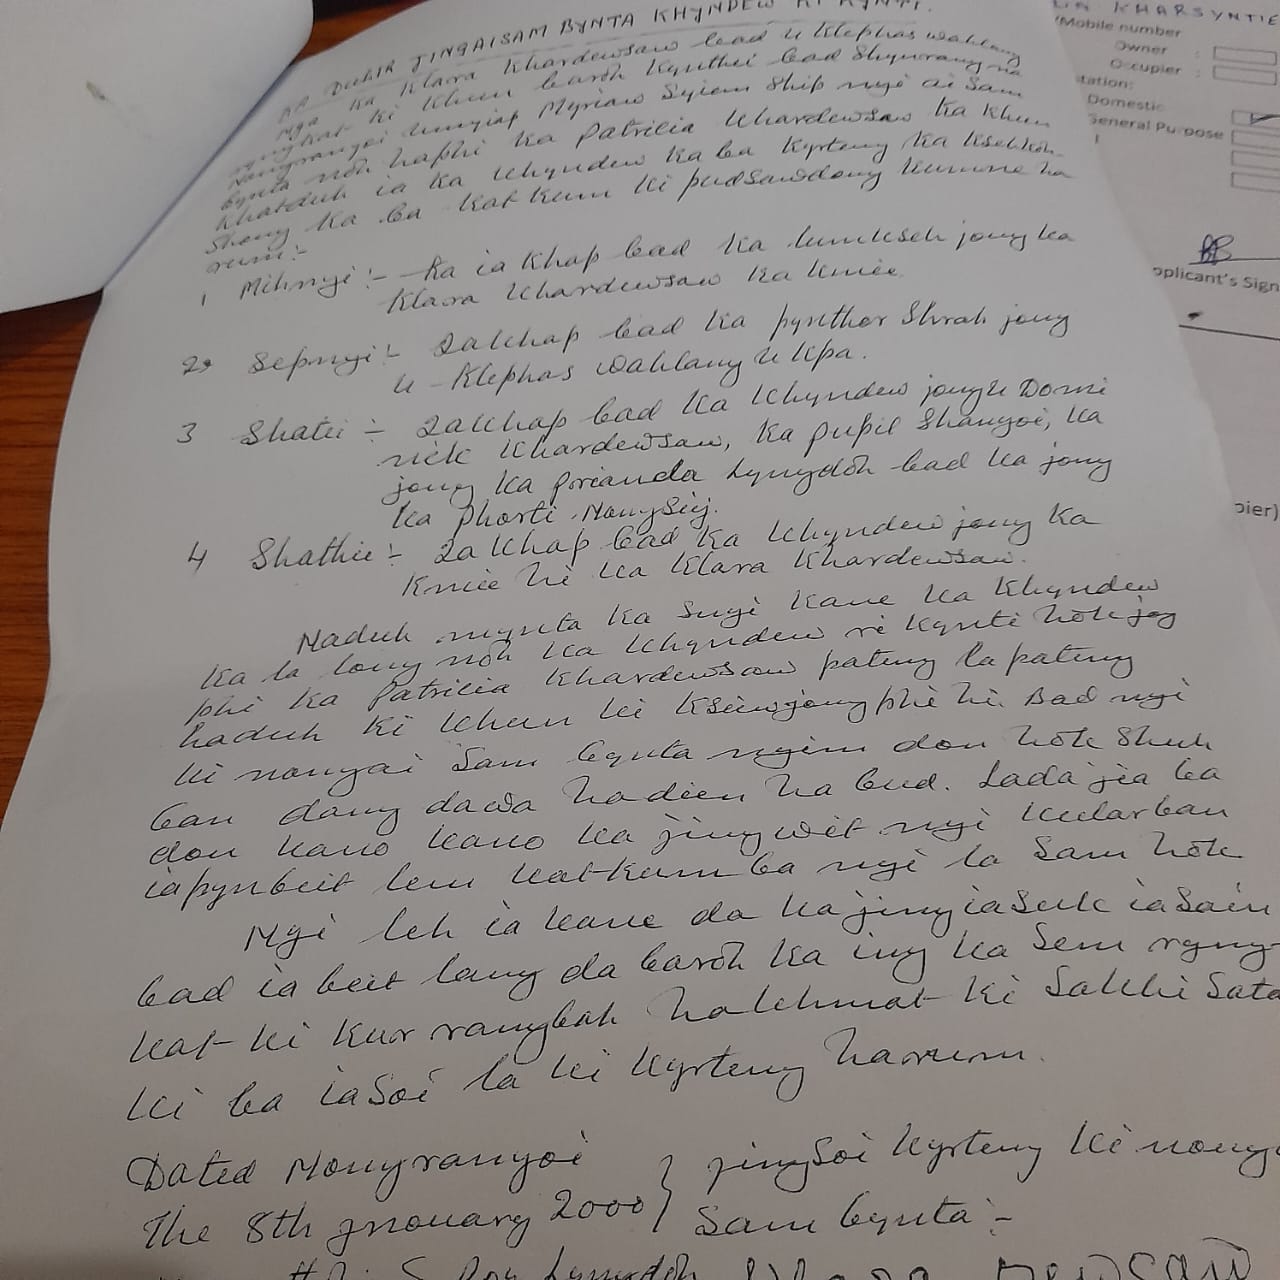 KA DULIR JINGAISAM BYNTA KHYNDEW RI KYNTI.
Nga Ka Klara Khardewsaw bad U Klephas Wahlang
ryngkat ki khun baroh kynthei bad Shynrang na
Nongrangoi Umyiap Myriaw Syiem Ship ngi ai Sam
bynta noh haphi Ka Patricia Khardewsaw Ka Khun
Khatduh ia Ka Khyndew Ka ba Kyrteng Ka
Shong Ka ba Kat Kum ki pudsawdong kumne ha
rum:-
1 Mihngi:- Ka ia Khap bad Ka jong Ka
Klara Khardewsaw Ka Kmie.
2. Sepngi:- Ia Khap bad Ka pynthor Shrah jong
U Klephas Wahlang U Kpa.
3 Shatei:- Ia Khap bad Ka Khyndew jong U Domi
nick Khardewsaw, Ka pupil Shangoi, Ka
jong Ka Lyngdoh bad Ka jong
Ka Phorti Nongsiej.
4 Shathie:- Ia Khap bad Ka Khyndew jong Ka
Kmie hi Ka Klara Khardewsaw.
Naduh mynta Ka Sngi Kane Ka Khyndew
Ka la long noh Ka Khyndew ri Kynti hok jog
phi Ka Patricia Khardewsaw pateng la pateng
haduh Ki Khun Ki Ksiew jong phi hi. Bad ngi
Ki nongai Sam bynta ngim don hok Shuh
ban dang dawa hadien ha bud. Lada jia ba
don Kano Kano Ka jingwit ngi Kular ban
iapynbeit lem Kat-Kum ba ngi la Sam hok
Ngi leh ia Kane da Ka jingiasuk iasain
bad iabeit lang da baroh Ka ing Ka Sem ryng-
Kat Ki Kur rangbah haKhmat Ki Sakhi Sata
Ki ba iasoi la Ki Kyrteng harum.
Dated Nongrangoi
The 8th Jnouary 2000
} jingsoi Kyrteng Ki nong
Sam bynta:-
KHARSYNTIE
Mobile number
Owner :
Occupier :
Domestic
General Purpose